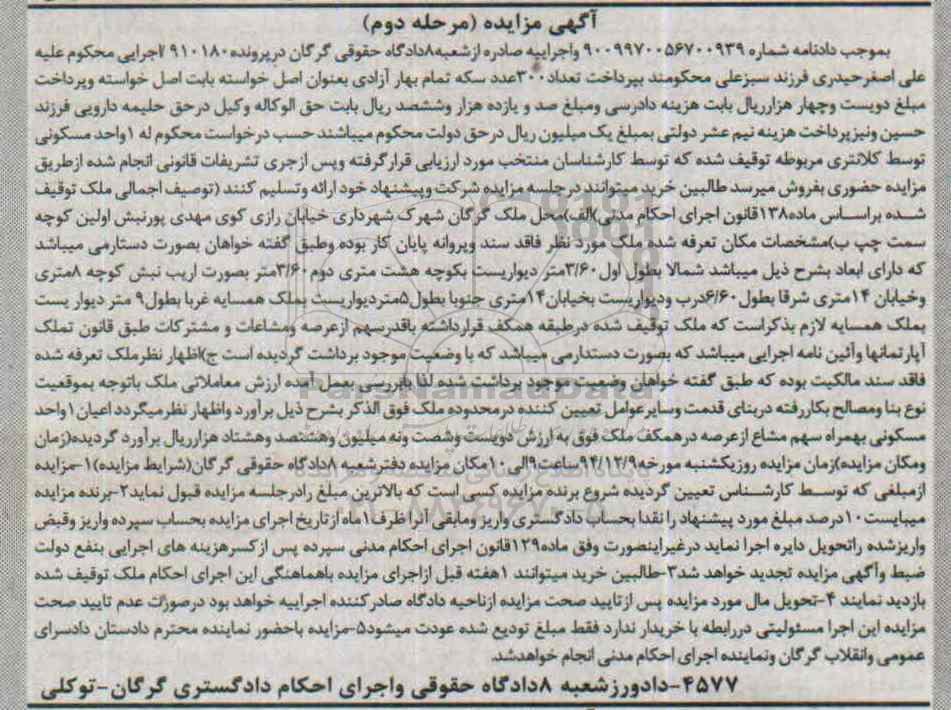 آگهی مزایده (مرحله دوم)
بموجب دادنامه شماره ۹۰۰۹۹۷۰۰۵۶۷۰۰۹۳۹ واجراییه صادره ازشعبه۸دادگاه حقوقی گرگان درپرونده۹۱۰۱۸۰ /اجرایی محکوم علیه
علی اصغرحیدری فرزند سبزعلی محکومند بپرداخت تعداد۳۰۰عدد سکه تمام بهار آزادی بعنوان اصل خواسته بابت اصل خواسته وپرداخت
مبلغ دویست وچهار هزارریال بابت هزینه دادرسی ومبلغ صد و یازده هزار وششصد ریال بابت حق الوکاله وکیل درحق حلیمه دارویی فرزند
حسین ونیزپرداخت هزینه نیم عشر دولتی بمبلغ یک میلیون ریال درحق دولت محکوم میباشند حسب درخواست محکوم له ۱واحد مسکونی
توسط کلانتری مربوطه توقیف شده که توسط کارشناسان منتخب مورد ارزیابی قرارگرفته وپس ازجری تشریفات قانونی انجام شده ازطریق
مزایده حضوری بفروش میرسد طالبین خرید میتوانند درجلسه مزایده شرکت وپیشنهاد خود ارائه وتسلیم کنند (توصیف اجمالی ملک توقیف
شده براساس ماده۱۳۸قانون اجرای احکام مدنی)الف)محل ملک گرگان شهرک شهرداری خیابان رازی کوی مهدی پورنبش اولین کوچه
سمت چپ ب)مشخصات مکان تعرفه شده ملک مورد نظر فاقد سند وپروانه پایان کار بوده وطبق گفته خواهان بصورت دستارمی میباشد
که دارای ابعاد بشرح ذیل میباشد شمالا بطول اول ۳/۶۰متر دیواریست بکوچه هشت متری دوم ۳/۶۰متر بصورت اریب نبش کوچه ۸متری
وخیابان ۱۴متری شرقا بطول ۶/۶۰درب ودیواریست بخیابان۱۴متری جنوبا بطول۵متردیواریست بملک همسایه غربا بطول۹ متر دیوار یست
بملک همسایه لازم بذکراست که ملک توقیف شده درطبقه همکف قرارداشته باقدرسهم ازعرصه ومشاعات و مشترکات طبق قانون تملک
آپارتمانها وآئین نامه اجرایی میباشد که بصورت دستدارمی میباشد که با وضعیت موجود برداشت گردیده است ج)اظهار نظرملک تعرفه شده
فاقد سند مالکیت بوده که طبق گفته خواهان وضعیت موجود برداشت شده لذا بابررسی بعمل آمده ارزش معاملاتی ملک باتوجه بموقعیت
نوع بنا ومصالح بکاررفته دربنای قدمت وسایرعوامل تعیین کننده درمحدوده ملک فوق الذکر بشرح ذیل برآورد واظهار نظرمیگردد اعیان ۱واحد
مسکونی بهمراه سهم مشاع ازعرصه درهمکف ملک فوق به ارزش دویست وشصت ونه میلیون وهشتصد وهشتاد هزارریال برآورد گردیده(زمان
ومکان مزایده)زمان مزایده روزیکشنبه مورخه۹۴/۱۲/۹ساعت۹الی۱۰مکان مزایده دفترشعبه ۸دادگاه حقوقی گرگان(شرایط مزایده)۱-مزایده
ازمبلغی که توسط کارشناس تعیین گردیده شروع برنده مزایده کسی است که بالاترین مبلغ رادرجلسه مزایده قبول نماید۲-برنده مزایده
میبایست ۱۰درصد مبلغ مورد پیشنهاد را نقدا بحساب دادگستری واریز ومابقی انرا ظرف۱ماه ازتاریخ اجرای مزایده بحساب سپرده واریز وقبض
واریزشده راتحویل دایره اجرا نماید درغیراینصورت وفق ماده۱۲۹قانون اجرای احکام مدنی سپرده پس ازکسرهزینه های اجرایی بنفع دولت
ضبط وآگهی مزایده تجدید خواهد شد۳-طالبین خرید میتوانند ۱هفته قبل ازاجرای مزایده باهماهنگی این اجرای احکام ملک توقیف شده
بازدید نمایند ۴-تحویل مال مورد مزایده پس ازتایید صحت مزایده ازناحیه دادگاه صادرکننده اجراییه خواهد بود درصورت عدم تایید صحت
مزایده این اجرا مسئولیتی دررابطه با خریدار ندارد فقط مبلغ تودیع شده عودت میشود۵-مزایده باحضور نماینده محترم دادستان دادسرای
عمومی وانقلاب گرگان ونماینده اجرای احکام مدنی انجام خواهدشد.
۴۵۷۷-دادورزشعبه ۸دادگاه حقوقی واجرای احکام دادگستری گرگان-توکلی
ParsNamadData